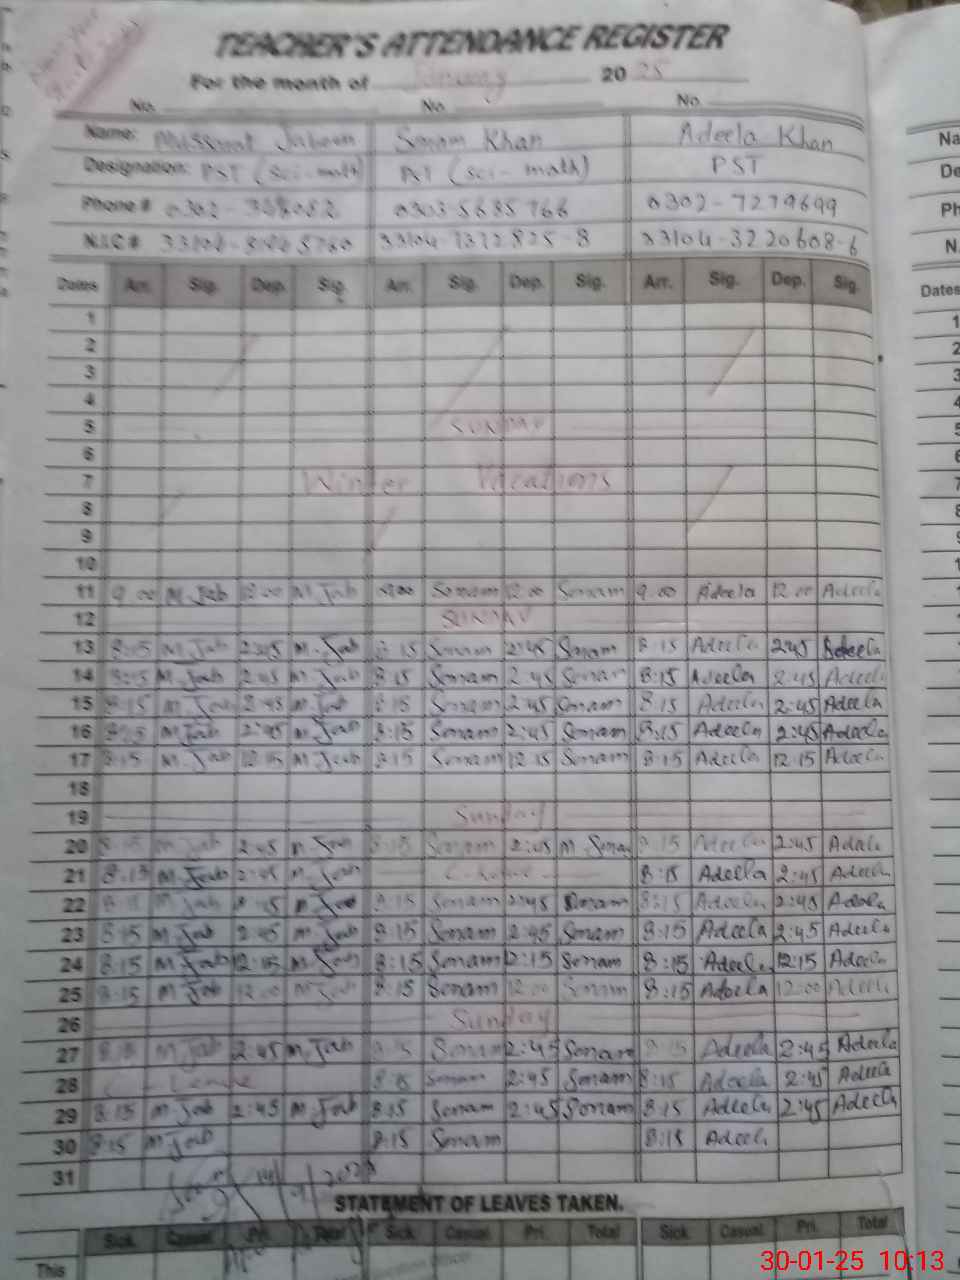 TEACHER'S ATTENDANCE REGISTER
For the month of 20 25
No. No. No.
Name: Mussarat Jabeen Sonam Khan Adeela Khan
Designation: PST (Sci-math) PST (sci-math) PST
Phone # 0303-5685766 0302-7279699
N.I.C # 33104-7372825-8 33104-3220608-6
Dates Arr. Sig. Dep. Sig. Arr. Sig. Dep. Sig. Arr. Sig. Dep. Sig.
1
2
3
4
5 SUNDAY
6
7 Winter Vacations
8
9
10
11 9.00 M.Jab 12.00 M.Jab 9.00 Sonam 12.00 Sonam 9.00 Adeela 12.00 Adeela
12 SUNDAY
13 8:15 M.Jab 2:45 M.Jab 8:15 Sonam 2:45 Sonam 8:15 Adeela 2:45 Adeela
14 8:15 M.Jab 2:45 M.Jab 8:15 Sonam 2:45 Sonam 8:15 Adeela 2:45 Adeela
15 8:15 M.Jab 2:45 M.Jab 8:15 Sonam 2:45 Sonam 8:15 Adeela 2:45 Adeela
16 8:15 M.Jab 2:45 M.Jab 8:15 Sonam 2:45 Sonam 8:15 Adeela 2:45 Adeela
17 8:15 M.Jab 12:15 M.Jab 8:15 Sonam 12:15 Sonam 8:15 Adeela 12:15 Adeela
18
19 Sunday
20 8:15 M.Jab 2:45 M.Jab 8:15 Sonam 2:45 M Sonam 8:15 Adeela 2:45 Adeela
21 8:15 M.Jab 2:45 M.Jab 8:15 Adeela 2:45 Adeela
22 8:15 M.Jab M.Jab 8:15 Sonam 2:45 Sonam 8:15 Adeela 2:45 Adeela
23 8:15 M.Jab 2:45 M.Jab 8:15 Sonam 2:45 Sonam 8:15 Adeela 2:45 Adeela
24 8:15 M.Jab 12:15 M.Jab 8:15 Sonam 12:15 Sonam 8:15 Adeela 12:15 Adeela
25 8:15 M.Jab 12:00 M.Jab 8:15 Sonam 12:00 Sonam 8:15 Adeela 12:00 Adeela
26 Sunday
27 8:15 M.Jab 2:45 M.Jab 8:15 Sonam 2:45 Sonam 8:15 Adeela 2:45 Adeela
28 C - Leave 8:15 Sonam 2:45 Sonam 8:15 Adeela 2:45 Adeela
29 8:15 M.Jab 2:45 M.Jab 8:15 Sonam 2:45 Sonam 8:15 Adeela 2:45 Adeela
30 8:15 M.Jab 8:15 Sonam 8:15 Adeela
31
STATEMENT OF LEAVES TAKEN.
Sick Casual Pri. Total Sick Casual Pri. Total Sick Casual Pri. Total
This
30-01-25 10:13